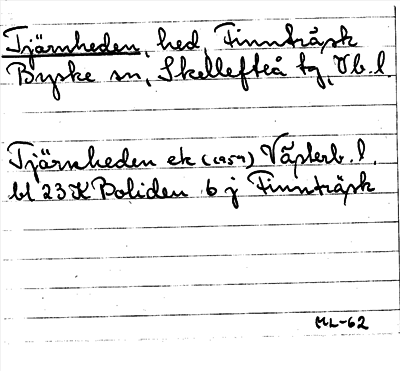 Tjärnheden, hed, Finnträsk
Byske sn, Skellefteå tg, Vb. l.
Tjärnheden ek (1959) Västerb. l.
bl 23 K Boliden 6 j Finnträsk
ML-62